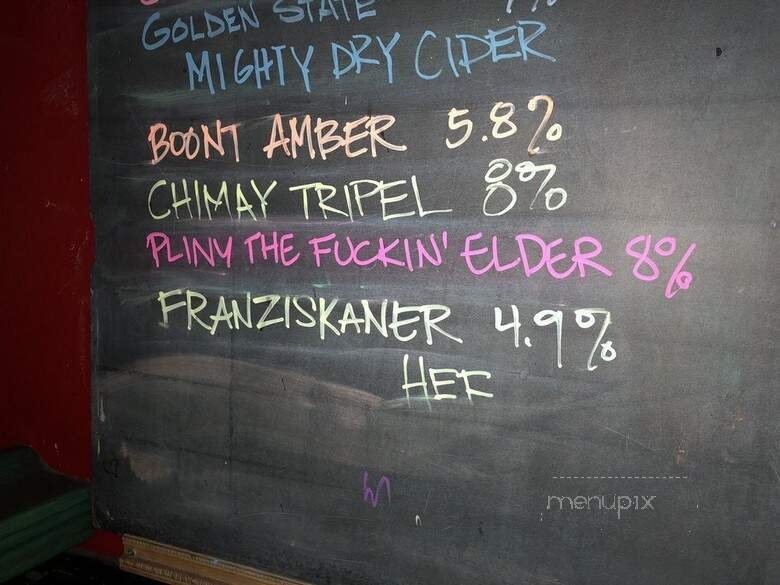 GOLDEN STATE
MIGHTY DRY CIDER
BOONT AMBER 5.8%
CHIMAY TRIPEL 8%
PLINY THE FUCKIN' ELDER 8%
FRANZISKANER 4.9%
HEF
menupix